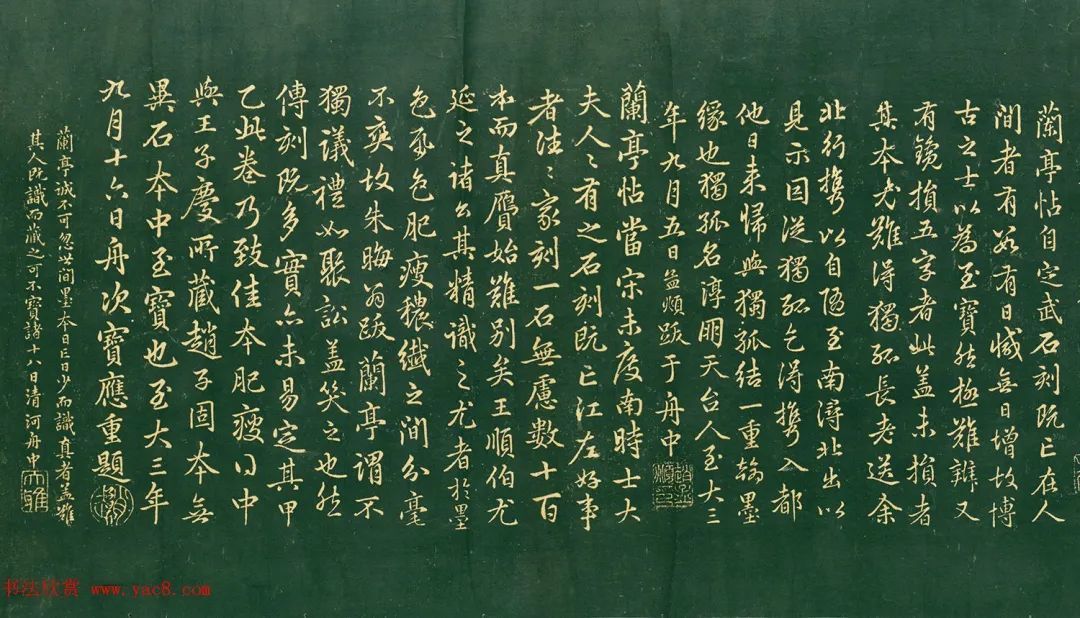 蘭亭帖自定武石刻既亡在人
間者有數有日減無日增故博
古之士以為至寶然極難辨又
有鑱損五字者此盖未損者
其本尤難得獨孤長老送余
北行攜以自隨至南潯北出以
見示因從獨孤乞得攜入都
他日来歸與獨孤結一重翰墨
緣也獨孤名淳朋天台人至大三
年九月五日孟頫跋于舟中
蘭亭帖當宋未度南時士大
夫人々有之石刻既亡江左好事
者往々家刻一石無慮數十百
本而真贋始難別矣王順伯尤
延之諸公其精識之尤者於墨
色帋色肥瘦穠纖之間分毫
不爽故朱晦翁跋蘭亭謂不
獨議禮如聚訟盖笑之也然
傳刻既多實亦未易定其甲
乙此卷乃致佳本肥瘦得中
與王子慶所藏趙子固本無
異石本中至寶也至大三年
九月十六日舟次寶應重題
蘭亭誠不可忽世間墨本日亡日少而識真者盖難
其人既識而藏之可不寶諸十八日清河舟中
大雅
书法欣赏 www.yac8.com